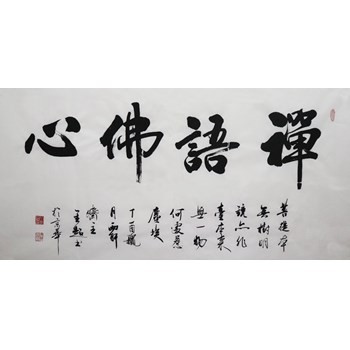 禪語佛心
菩提本
無樹明
鏡亦非
臺本來
無一物
何處惹
塵埃
丁酉
月
齋主
書
於京華